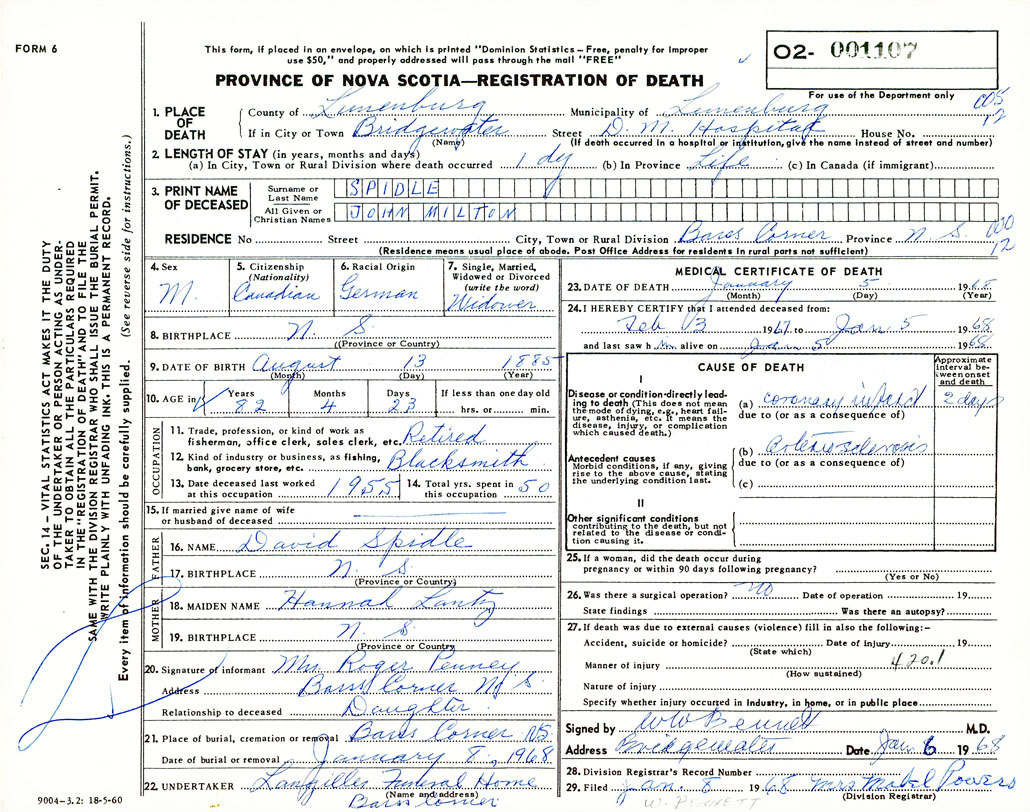 FORM 6
This form, if placed in an envelope, on which is printed "Dominion Statistics – Free, penalty for improper
use $50," and properly addressed will pass through the mail "FREE"
O2- 001107
PROVINCE OF NOVA SCOTIA—REGISTRATION OF DEATH
For use of the Department only
005
12
1. PLACE OF DEATH
County of Lunenburg Municipality of Lunenburg
If in City or Town Bridgewater Street D. M. Hospital House No.
(Name) (If death occurred in a hospital or institution, give the name instead of street and number)
2. LENGTH OF STAY (in years, months and days)
(a) In City, Town or Rural Division where death occurred 1 dy (b) In Province Life (c) In Canada (if immigrant)
3. PRINT NAME OF DECEASED
Surname or Last Name SPIDLE
All Given or Christian Names JOHN MILTON
RESIDENCE No Street City, Town or Rural Division Barss Corner Province N. S.
000
12
(Residence means usual place of abode. Post Office Address for residents in rural parts not sufficient)
4. Sex M.
5. Citizenship (Nationality) Canadian
6. Racial Origin German
7. Single, Married, Widowed or Divorced (write the word) Widower
8. BIRTHPLACE N. S.
(Province or Country)
9. DATE OF BIRTH August 13 1885
(Month) (Day) (Year)
10. AGE in Years 82 Months 4 Days 23 If less than one day old hrs. or min.
OCCUPATION
11. Trade, profession, or kind of work as
fisherman, office clerk, sales clerk, etc. Retired
12. Kind of industry or business, as fishing,
bank, grocery store, etc. Blacksmith
13. Date deceased last worked
at this occupation 1955
14. Total yrs. spent in
this occupation 50
15. If married give name of wife
or husband of deceased
FATHER
16. NAME David Spidle
17. BIRTHPLACE N. S.
(Province or Country)
MOTHER
18. MAIDEN NAME Hannah Lantz
19. BIRTHPLACE N. S.
(Province or Country)
20. Signature of informant Mrs Roger Penney
Address Barss Corner N S.
Relationship to deceased Daughter
21. Place of burial, cremation or removal Barss Corner NS.
Date of burial or removal January 8, 1968
22. UNDERTAKER Langilles Funeral Home
(Name and address)
Barss Corner
MEDICAL CERTIFICATE OF DEATH
23. DATE OF DEATH January 5 1968
(Month) (Day) (Year)
24. I HEREBY CERTIFY that I attended deceased from:
Feb 13 1967 to Jan 5 1968
and last saw him alive on Jan 5 1968
CAUSE OF DEATH
Approximate interval between onset and death
I
Disease or condition-directly leading to death (This does not mean
the mode of dying, e.g., heart failure, asthenia, etc. It means the
disease, injury, or complication
which caused death.)
(a) coronary infarct 2 days
due to (or as a consequence of)
Antecedent causes
Morbid conditions, if any, giving
rise to the above cause, stating
the underlying condition last.
(b) arteriosclerosis
due to (or as a consequence of)
(c)
II
Other significant conditions
contributing to the death, but not
related to the disease or condition causing it.
25. If a woman, did the death occur during
pregnancy or within 90 days following pregnancy?
(Yes or No)
26. Was there a surgical operation? No Date of operation 19
State findings Was there an autopsy?
27. If death was due to external causes (violence) fill in also the following:–
Accident, suicide or homicide? Date of injury 19
(State which)
Manner of injury 420.1
(How sustained)
Nature of injury
Specify whether injury occurred in industry, in home, or in public place
Signed by WW Bennett M.D.
Address Bridgewater Date Jan 6 1968
28. Division Registrar's Record Number
29. Filed Jan. 8 1968 Mrs Mabel Powers
(Division Registrar)
W. BENNETT
SEC. 14 – VITAL STATISTICS ACT MAKES IT THE DUTY
OF THE UNDERTAKER OR PERSON ACTING AS UNDERTAKER TO OBTAIN ALL THE PARTICULARS REQUIRED
IN THE "REGISTRATION OF DEATH" AND TO FILE THE
SAME WITH THE DIVISION REGISTRAR WHO SHALL ISSUE THE BURIAL PERMIT.
WRITE PLAINLY WITH UNFADING INK. THIS IS A PERMANENT RECORD.
Every item of information should be carefully supplied. (See reverse side for instructions.)
9004-3.2: 18-5-60